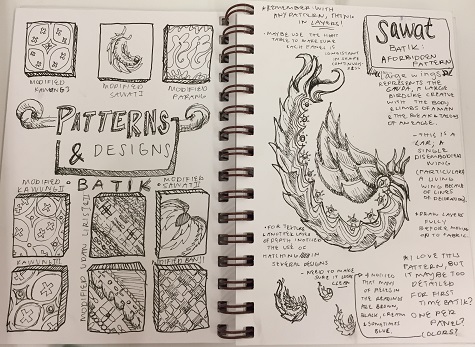 MODIFIED
KAWUNG I
MODIFIED
SAWAT I
MODIFIED
PARANG
PATTERNS
& DESIGNS
BATIK
MODIFIED
KAWUNG II
MODIFIED
SAWAT II
KAWUNG III
MODIFIED UDAN LRIS
MODIFIED BAN
• REMEMBER WITH
ANY PATTERN, THINK
IN LAYERS!
• MAYBE USE THE LIGHT
TABLE TO MAKE SURE
EACH PANEL IS
CONSISTANT
IN SHAPE
• FOR TEXTURE
& ANOTHER LAYER
OF DEPTH I NOTICED
THE USE OF
HATCHING IN
SEVERAL DESIGNS
• NEED TO MAKE
SURE IT LOOKS
CLEAN
• I NOTICED
THAT MANY
OF PIECES IN
THE READINGS
ARE BROWN,
BLACK, CREAM
& SOMETIMES
BLUE.
SAWAT
BATIK:
A FORBIDDEN
PATTERN
"Large wings"
REPRESENTS THE
GARUDA, A LARGE
BIRDLIKE CREATURE
WITH THE BODY
& LIMBS OF A MAN
& THE BEAK & TALONS
OF AN EAGLE.
- THIS IS A
LAR, A
SINGLE
DISEMBODIED
WING
(PARTICULARLY
A LIVING
WING BECAUSE
OF LINES
OF DECORATION)
• DRAW LAYERS
FULLY
BEFORE MOVING
ON TO FABRIC.
* I LOVE THIS
PATTERN, BUT
IT MAYBE TOO
DETAILED
FOR FIRST
TIME BATIK?
ONE PER
PANEL?
COLORS?